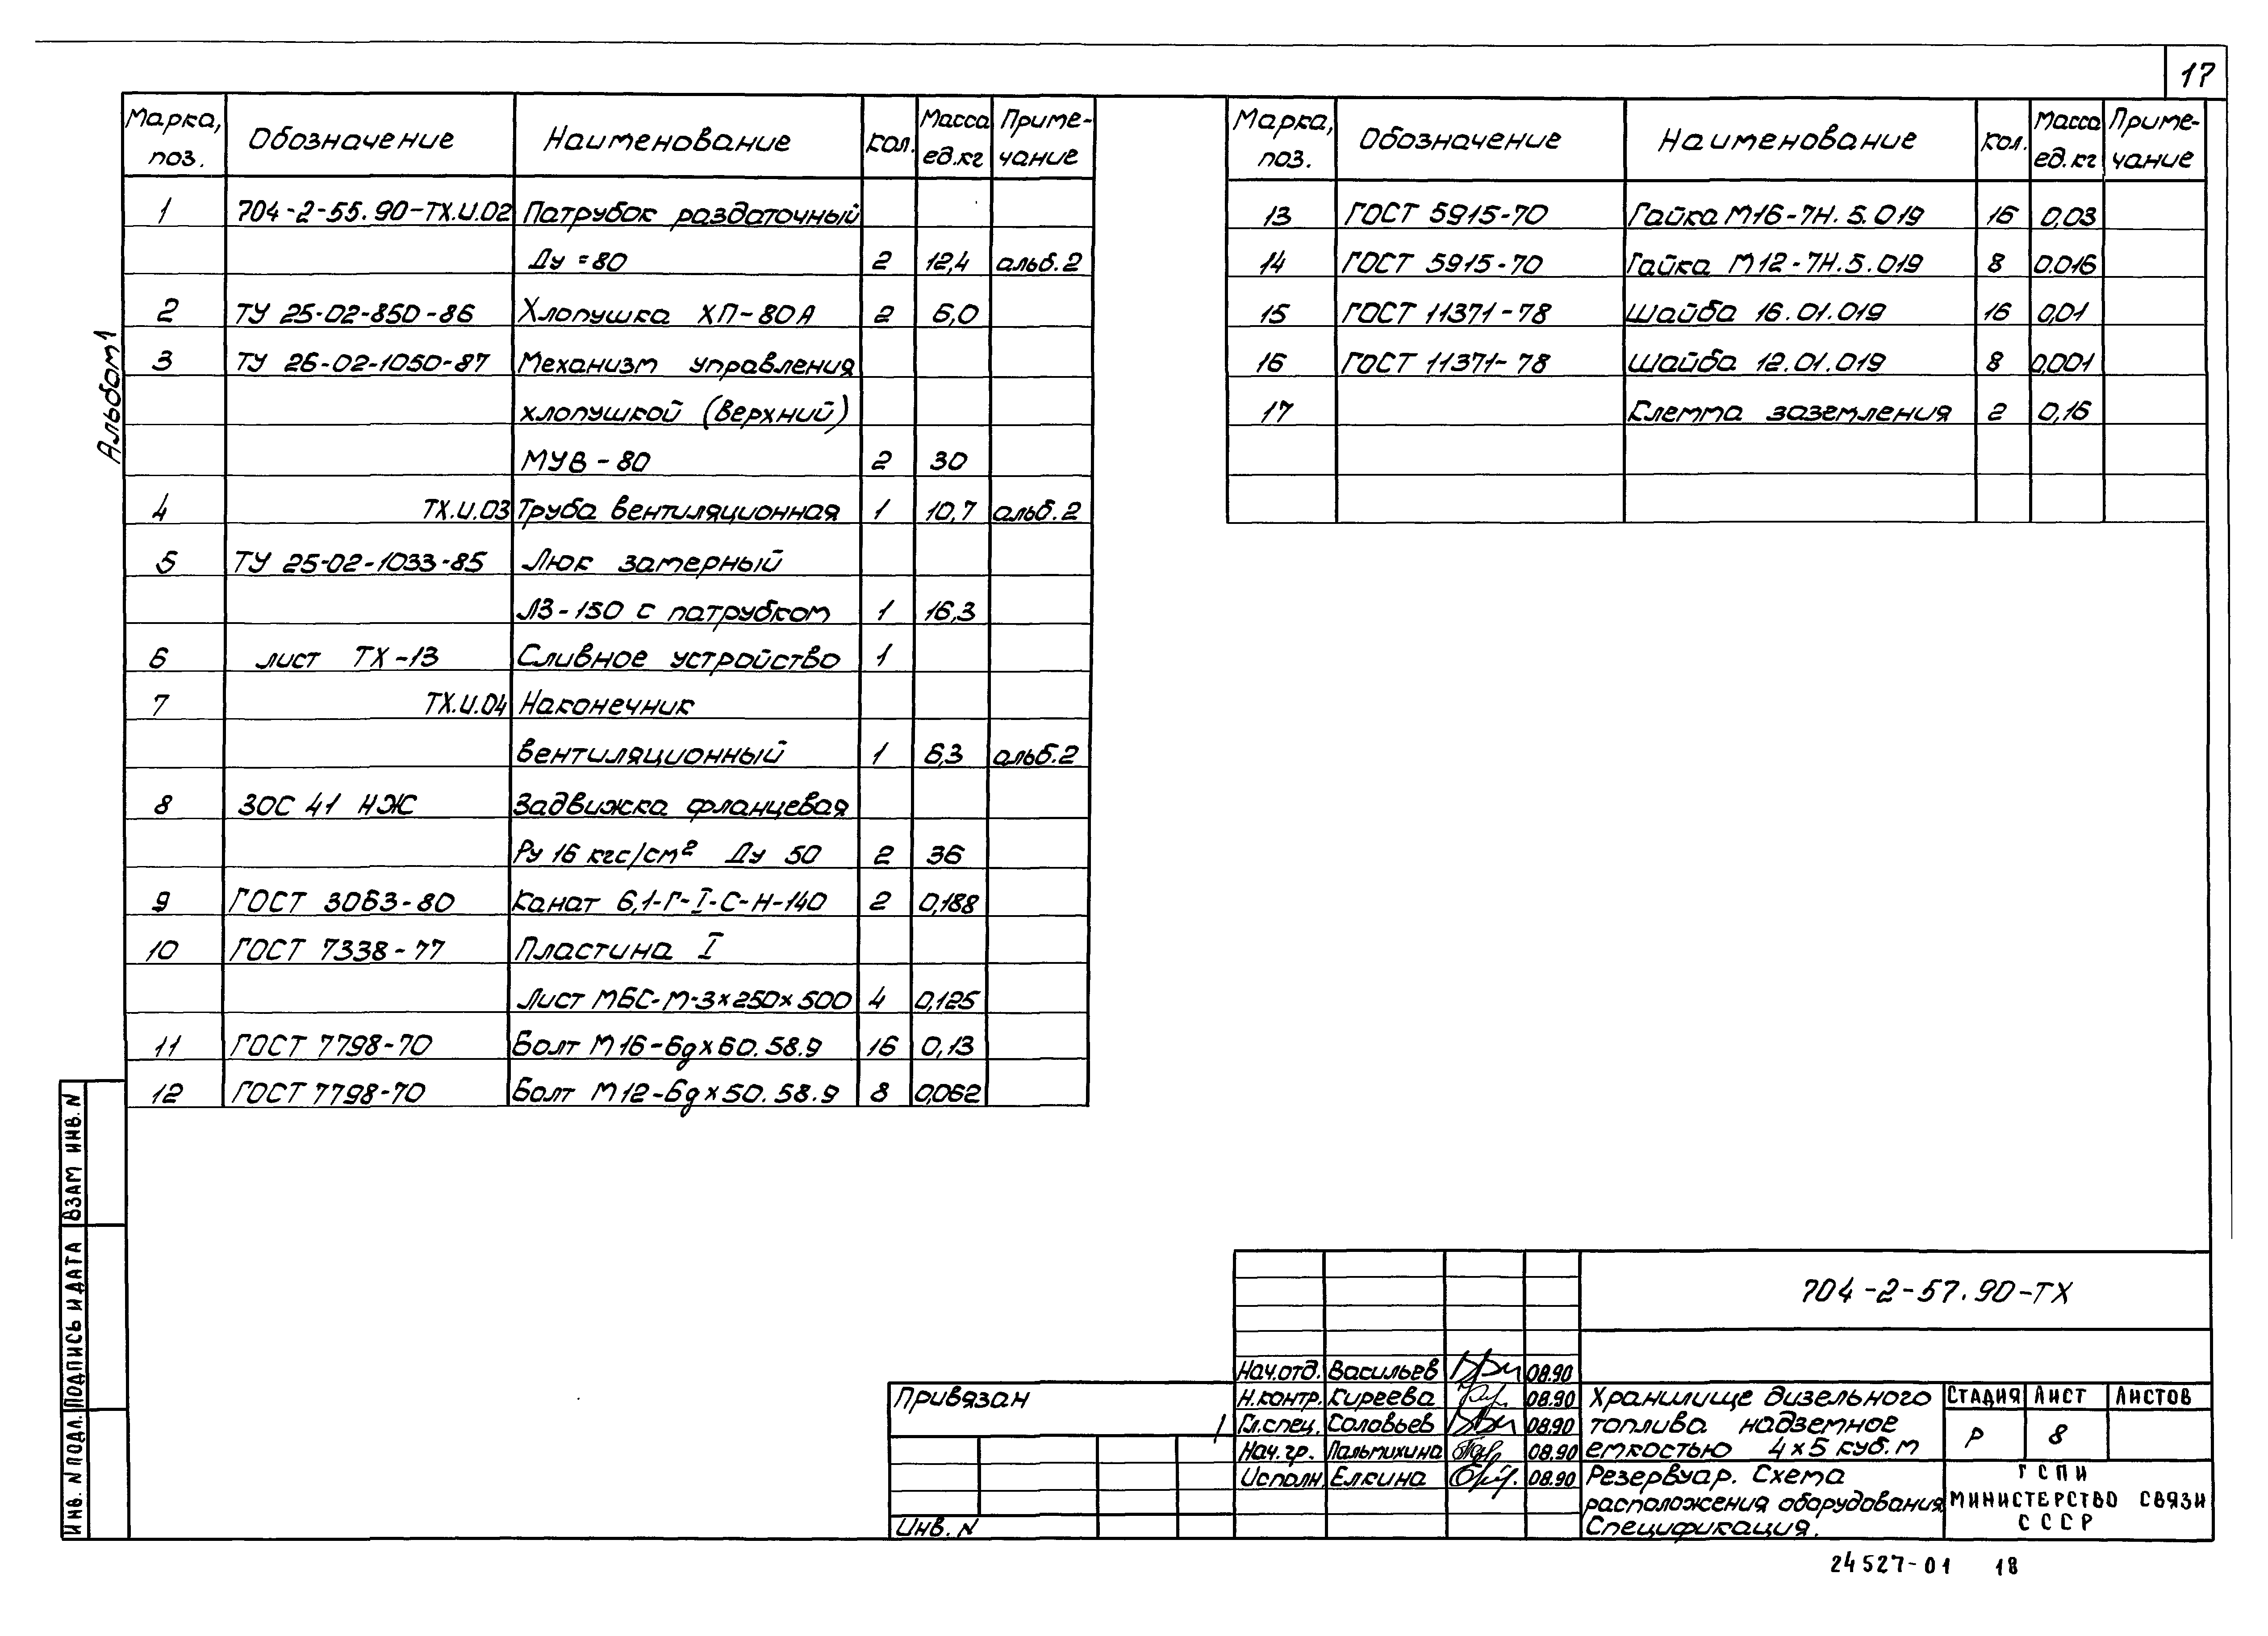 17
Альбом 1
Марка, поз. Обозначение Наименование Кол. Масса ед.кг Приме-чание
1 704-2-55.90-ТХ.И.02 Патрубок раздаточный
Ду = 80 2 12,4 альб.2
2 ТУ 25-02-850-86 Хлопушка ХП-80А 2 6,0
3 ТУ 26-02-1050-87 Механизм управления
хлопушкой (верхний)
МУВ-80 2 30
4 ТХ.И.03 Труба вентиляционная 1 10,7 альб.2
5 ТУ 25-02-1033-85 Люк замерный
ЛЗ-150 с патрубком 1 16,3
6 лист ТХ-13 Сливное устройство 1
7 ТХ.И.04 Наконечник
вентиляционный 1 6,3 альб.2
8 30С 41 НЖ Задвижка фланцевая
Ру 16 кгс/см² Ду 50 2 36
9 ГОСТ 3063-80 Канат 6,1-Г-I-С-Н-140 2 0,188
10 ГОСТ 7338-77 Пластина I
Лист МБС-М-3×250×500 4 0,125
11 ГОСТ 7798-70 Болт М16-6g×60.58.9 16 0,13
12 ГОСТ 7798-70 Болт М12-6g×50.58.9 8 0,062
Марка, поз. Обозначение Наименование Кол. Масса ед.кг Приме-чание
13 ГОСТ 5915-70 Гайка М16-7Н.5.019 16 0,03
14 ГОСТ 5915-70 Гайка М12-7Н.5.019 8 0.016
15 ГОСТ 11371-78 Шайба 16.01.019 16 0,01
16 ГОСТ 11371-78 Шайба 12.01.019 8 0,001
17 Клемма заземления 2 0,16
ВЗАМ ИНВ. N
ПОДПИСЬ И ДАТА
ИНВ. N ПОДЛ.
Привязан
Инв. N
704-2-57.90-ТХ
Нач.отд. Васильев 08.90
Н.контр. Киреева 08.90
Гл.спец. Соловьев 08.90
Нач. гр. Пальмихина 08.90
Исполн. Елкина 08.90
Хранилище дизельного
топлива надземное
емкостью 4×5 куб.м
СТАДИЯ ЛИСТ ЛИСТОВ
Р 8
Резервуар. Схема
расположения оборудования
Спецификация.
ГСПИ
МИНИСТЕРСТВО СВЯЗИ
СССР
24527-01 18